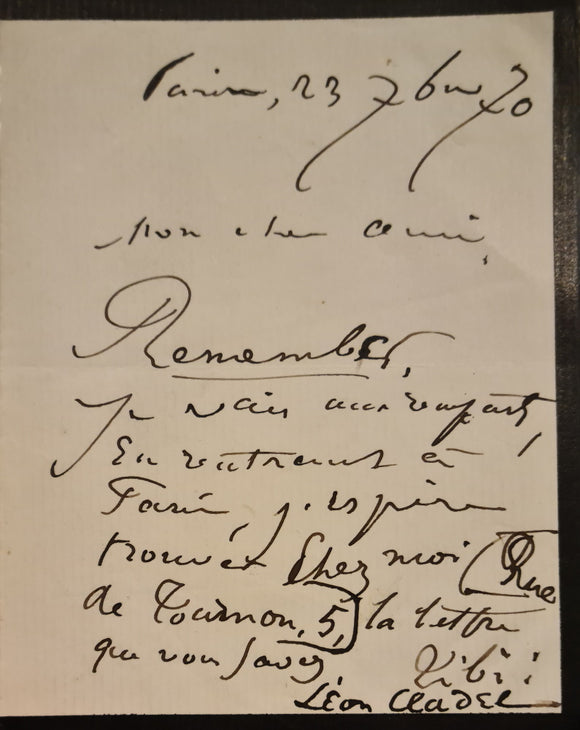 Paris, 23 7bre 70
Mon cher ami,
Remember,
Je vais aux remparts,
En rentrant à
Paris, j'espère
trouver chez moi (Rue
de Tournon, 5,) la lettre
que vous savez
Tibi:
Léon Cladel